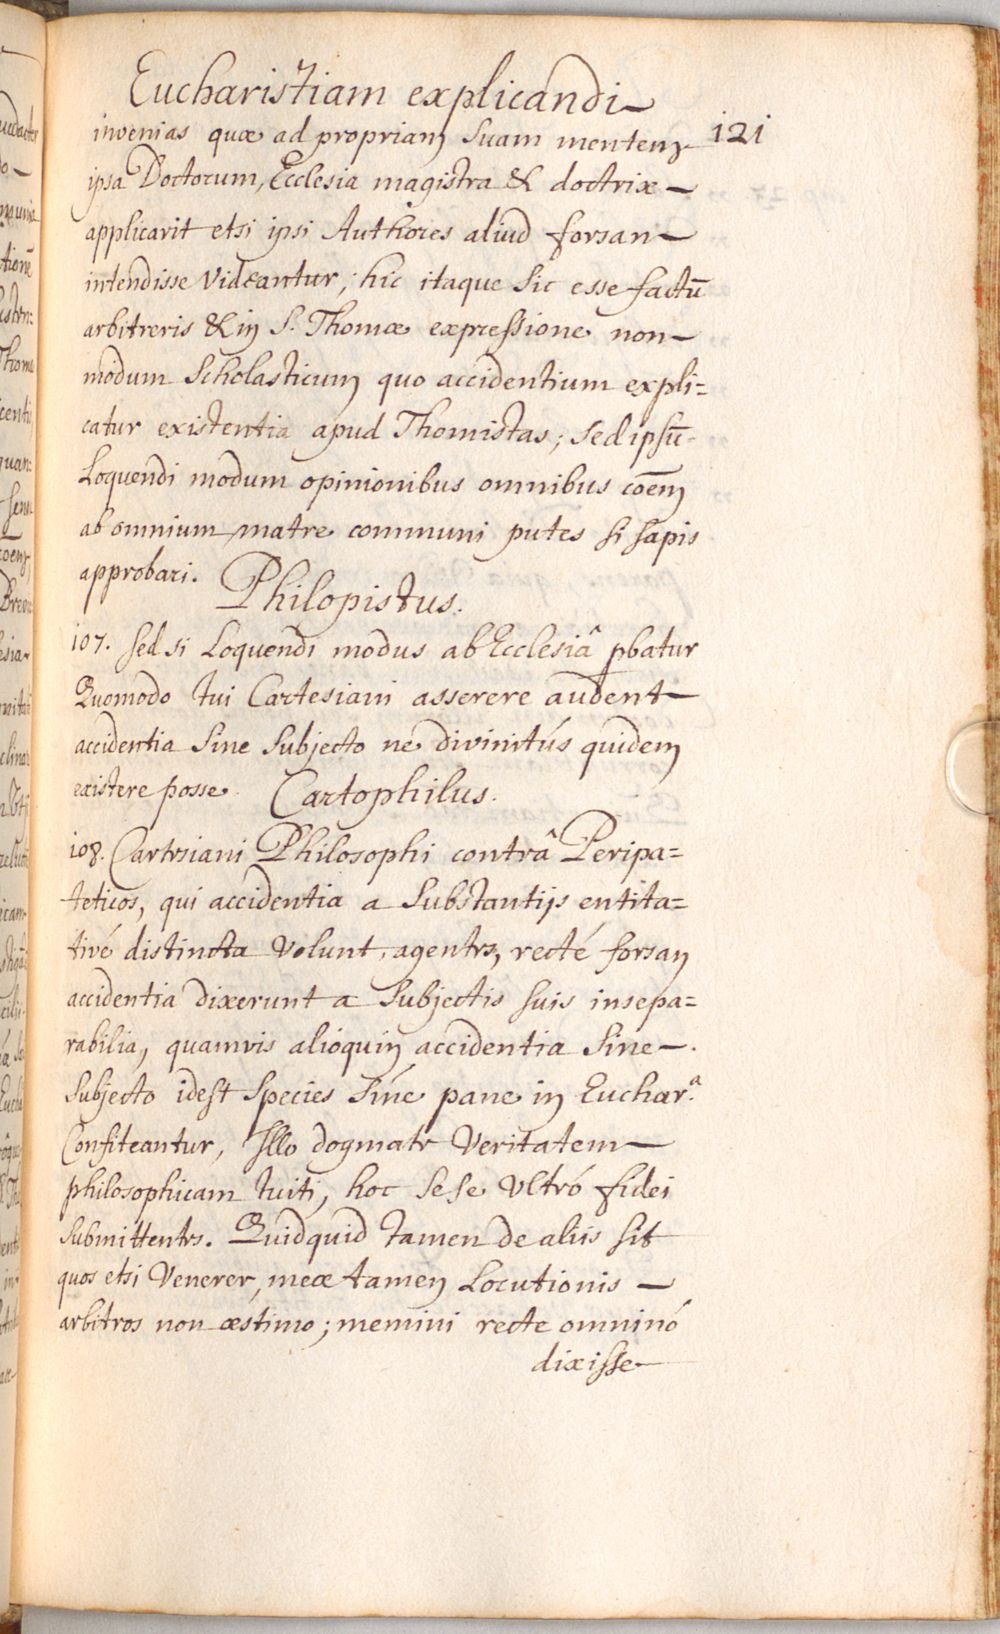 Eucharistiam explicandi
121
invenias quæ ad propriam suam mentem
ipsa Doctorum, Ecclesia magistra & doctrix
applicarit etsi ipsi Authores aliud forsan
intendisse videantur; hic itaque sic esse factū
arbitreris & in S. Thomæ expressione non
modum Scholasticum quo accidentium expli=
catur existentia apud Thomistas; sed ipsū
Loquendi modum opinionibus omnibus cōem
ab omnium matre communi putes si sapis
approbari.
Philopistus.
107. sed si Loquendi modus ab Ecclesiâ pbatur
Quomodo tui Cartesiani asserere audent
accidentia sine subjecto ne divinitús quidem
existere posse.
Cartophilus.
108. Cartesiani Philosophi contrâ Peripa=
teticos, qui accidentia a substantijs entita=
tivé distincta volunt, agentes, recté forsan
accidentia dixerunt a subjectis suis insepa=
rabilia, quamvis alioquin accidentia sine
subjecto idest species siné pane in Euchar.ª
Confiteantur, Illo dogmate veritatem
philosophicam tuiti, hoc sese ultró fidei
submittentes. Quidquid tamen de aliis sit
quos etsi venerer, meæ tamen Locutionis
arbitros non æstimo; memini recte omninó
dixisse